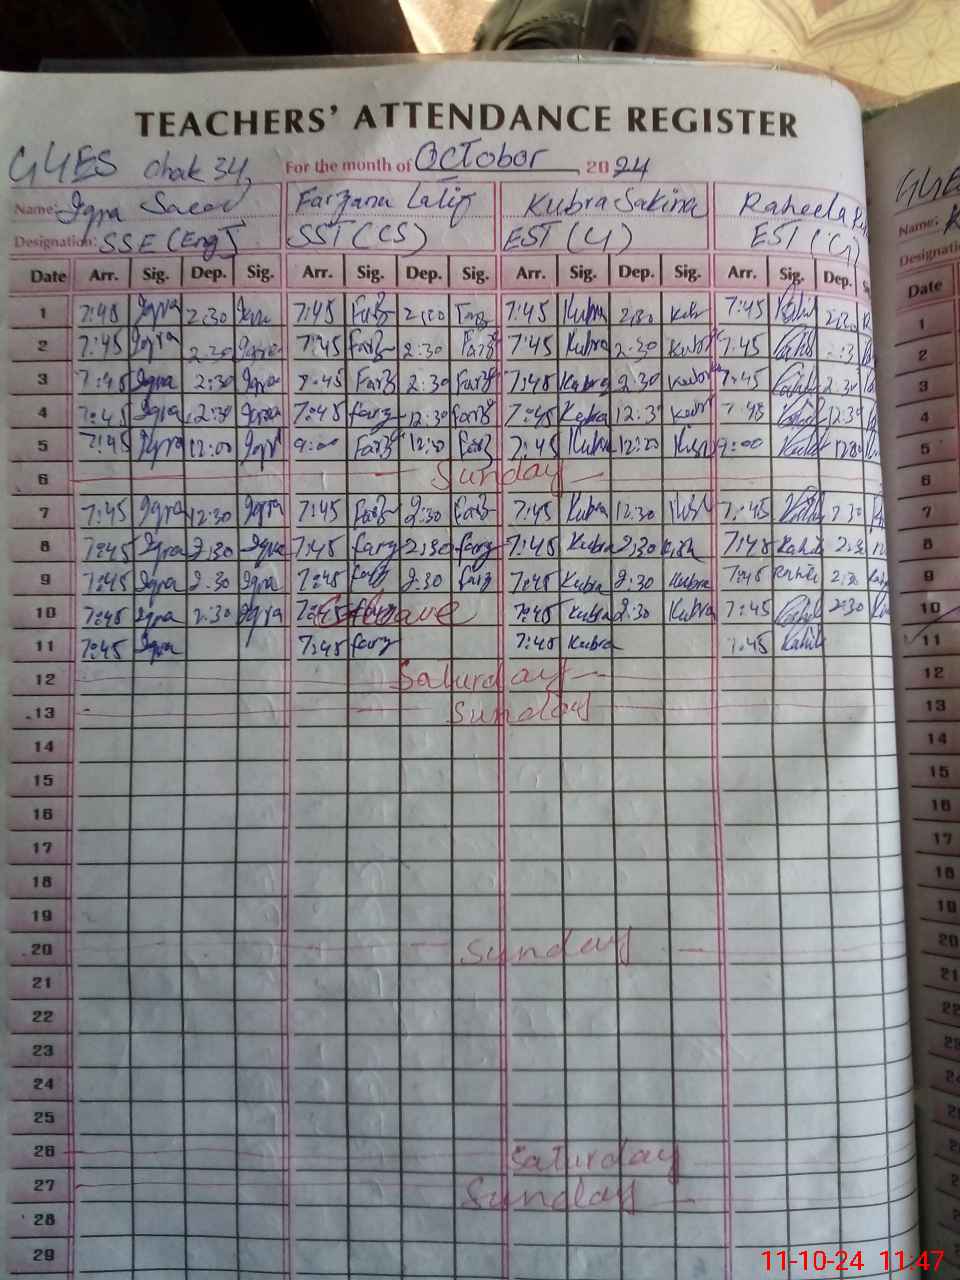 TEACHERS' ATTENDANCE REGISTER
GGES Chak 34, For the month of October 2024
Name: Iqra Saeed Farzana Latif Kubra Sakina Raheela
Designation: SSE (Eng) SST (CS) EST (G) EST (G)
Date Arr. Sig. Dep. Sig. Arr. Sig. Dep. Sig. Arr. Sig. Dep. Sig. Arr. Sig. Dep.
1 7:45 Iqra 2:30 Iqra 7:45 Farz 2:30 Farz 7:45 Kubra 2:30 7:45
2 7:45 Iqra 2:30 Iqra 7:45 Farz 2:30 Farz 7:45 Kubra 2:30 Kubra 7:45
3 7:45 Iqra 2:30 Iqra 7:45 Farz 2:30 Farz 7:45 Kubra 2:30 Kubra 7:45 2:30
4 7:45 Iqra 12:30 Iqra 7:45 Farz 12:30 Farz 7:45 Kubra 12:30 7:45 12:30
5 7:45 Iqra 12:00 Iqra 9:00 Farz 12:00 Farz 7:45 Kubra 12:00 9:00 12:00
6 Sunday
7 7:45 Iqra 12:30 Iqra 7:45 Farz 2:30 Farz 7:45 Kubra 12:30 7:45 2:30
8 7:45 Iqra 2:30 Iqra 7:45 Farz 2:30 Farz 7:45 Kubra 2:30 7:45 2:30
9 7:45 Iqra 2:30 Iqra 7:45 Farz 2:30 Farz 7:45 Kubra 2:30 Kubra 7:45 2:30
10 7:45 Iqra 2:30 Iqra 7:45 Leave 7:45 Kubra 2:30 Kubra 7:45 2:30
11 7:45 Iqra 7:45 Farz 7:45 Kubra 7:45
12 Saturday
13 Sunday
14
15
16
17
18
19
20 Sunday
21
22
23
24
25
26 Saturday
27 Sunday
28
29
Name:
Designation
Date
1
2
3
4
5
6
7
8
9
10
11
12
13
14
15
16
17
18
19
20
21
22
11-10-24 11:47